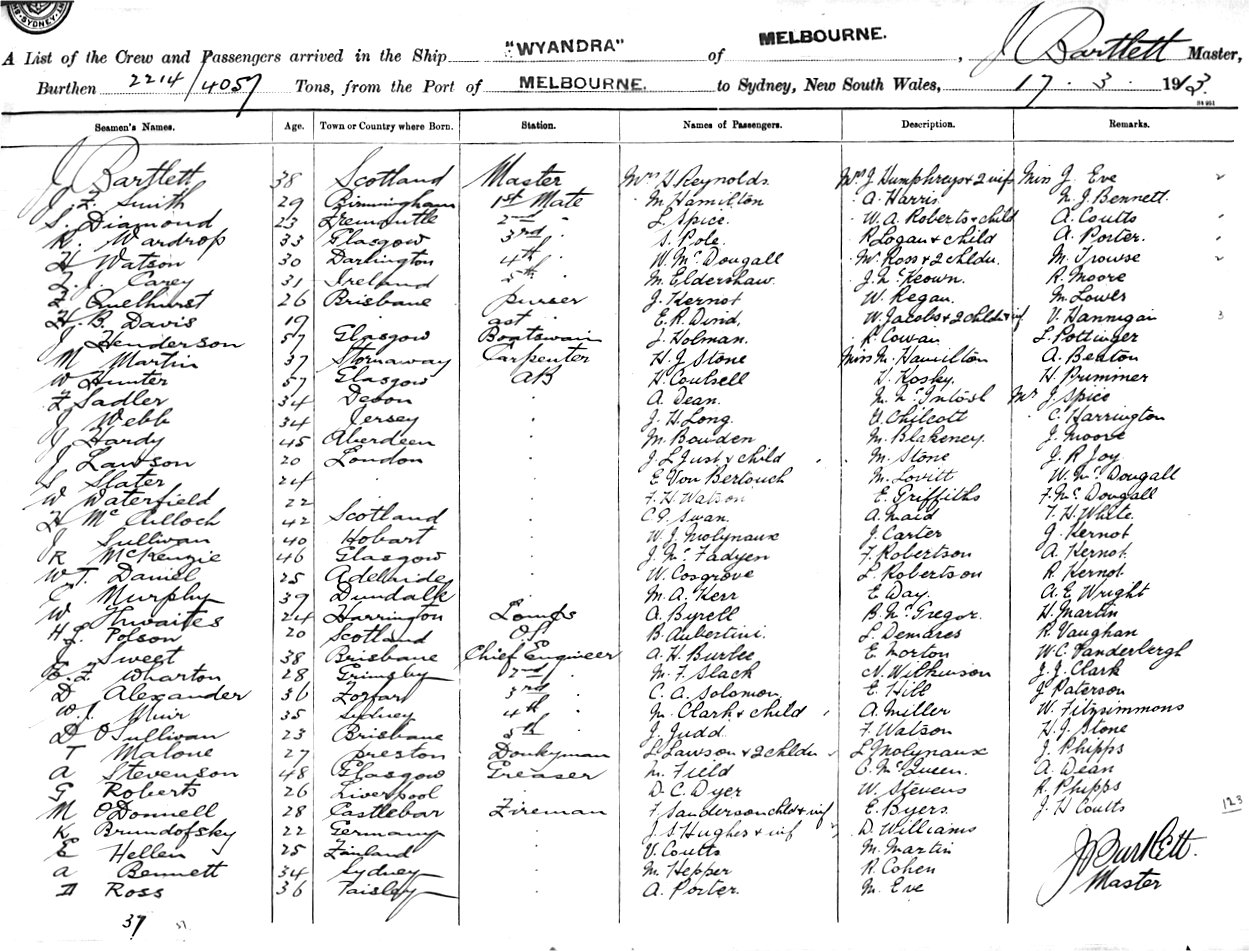 SYDNEY
A List of the Crew and Passengers arrived in the Ship "WYANDRA" of MELBOURNE. , J Bartlett Master,
Burthen 2214/4057 Tons, from the Port of MELBOURNE. to Sydney, New South Wales, 17 . 3 . 1913.
Seamen's Names. Age. Town or Country where Born. Station. Names of Passengers. Description. Remarks.
J Bartlett 38 Scotland Master Mrs H Reynolds Mrs J Humphreys & 2 inf Miss J. Eve
J. F. Smith 29 Birmingham 1st Mate M Hamilton A. Harris. N. J. Bennett.
S. Diamond 23 Fremantle 2nd L Spice. W. A. Roberts & child A. Coutts
R. Wardrop 33 Glasgow 3rd S. Pole. R Logan & child A. Porter.
H Watson 30 Darlington 4th W. McDougall Mr Ross & 2 chldn. M. Trowse
F. J. Carey 31 Ireland 5th M. Eldershaw. J. McKeown. R. Moore
26 Brisbane purser J. Kernot W. Regan. M. Lower
H. B. Davis 19 ast E. R. Dind, W. Jacobs & 2 childn & inf V. Hannigan 3
J Henderson 57 Glasgow Boatswain J. Holman. R. Cowan. L. Pottinger
M Martin 37 Stornaway Carpenter H. J. Stone Miss M. Hamilton A. Beaton
W Hunter 57 Glasgow AB H. Coulsell Kosky. H. Brimmer
F Sadler 34 Devon A. Dean. M. McIntosh Mr J Spice
J Webb 34 Jersey J. H. Long. Chilcott C. Harrington
J Hardy 45 Aberdeen M. Bowden M. Blakeney. J. Moore
J Lawson 20 London J. L Just & child M. Stone J. R Joy.
S Slater 24 E Von Bertouch M. Lovitt W. McDougall
W Waterfield 22 F. H. Watson E. Griffiths F. McDougall
H McCulloch 42 Scotland C. G. Swan. A. Maid F. H. White.
J Sullivan 40 Hobart W. J. Molynaux J. Carter G. Kernot
R McKenzie 46 Glasgow J. McFadyen F. Robertson A. Kernot.
W. T. Daniel 25 Adelaide W. Cosgrove L. Robertson R. Kernot.
C Murphy 39 Dundalk M. A. Kerr E. Day. A. E. Wright
W Thwaites 24 Harrington Lamps A. Byrell B. McGregor. H. Martin
H. L. Polson 20 Scotland O.S B. Aubertini. L. Demares R. Vaughan
J Sweet 38 Brisbane Chief Engineer A. H. Burlee E. Morton W. C. Vanderbergh
E. F. Wharton 28 Grimsby 2nd M. F. Slack N. Wilkinson J. J. Clark
D Alexander 36 Forfar 3rd C. A. Solomon. E. Hill J Paterson
W. J. Muir 35 Sydney 4th M. Clark & child A. Miller W. Fitzsimmons
D O'Sullivan 23 Brisbane 5th J. Judd. F. Watson H. J. Stone
T Malone 27 Preston Donkyman L Lawson & 2 chldn L Molynaux J. Phipps
A Stevenson 48 Glasgow Greaser M. Field C. McQueen. A. Dean
G Roberts 26 Liverpool D. C. Dyer W. Stevens R. Phipps
M O'Donnell 28 Castlebar Fireman F Sanderson child & inf E. Byers. J. H Coutts 123
K Brundofsky 22 Germany J. S. Hughes & inf D. Williams
E Hellen 25 Finland V. Coutts M. Martin J Bartlett.
A Bennett 34 Sydney M. Hepper R. Cohen Master
D Ross 36 Paisley A. Porter. M. Eve
37